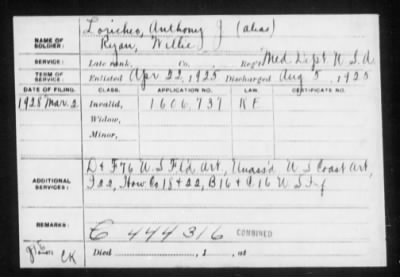 NAME OF SOLDIER: Anthony J (alias)
Ryan, Willie
SERVICE: Late rank, Co. Reg't Med Dept U.S.A.
TERM OF SERVICE: Enlisted Apr 22, 1925 Discharged Aug 5, 1925
DATE OF FILING. CLASS. APPLICATION NO. LAW. CERTIFICATE NO.
1928 Mar. 2 Invalid, 1606,737
Widow,
Minor,
ADDITIONAL SERVICES: D & F 76 U.S. Fld Art, Unass'd U S Coast Art,
22, How Co 18 & 22, B 16 & C 16 U S
REMARKS: C 444316 COMBINED
Died , 1 , at
CK